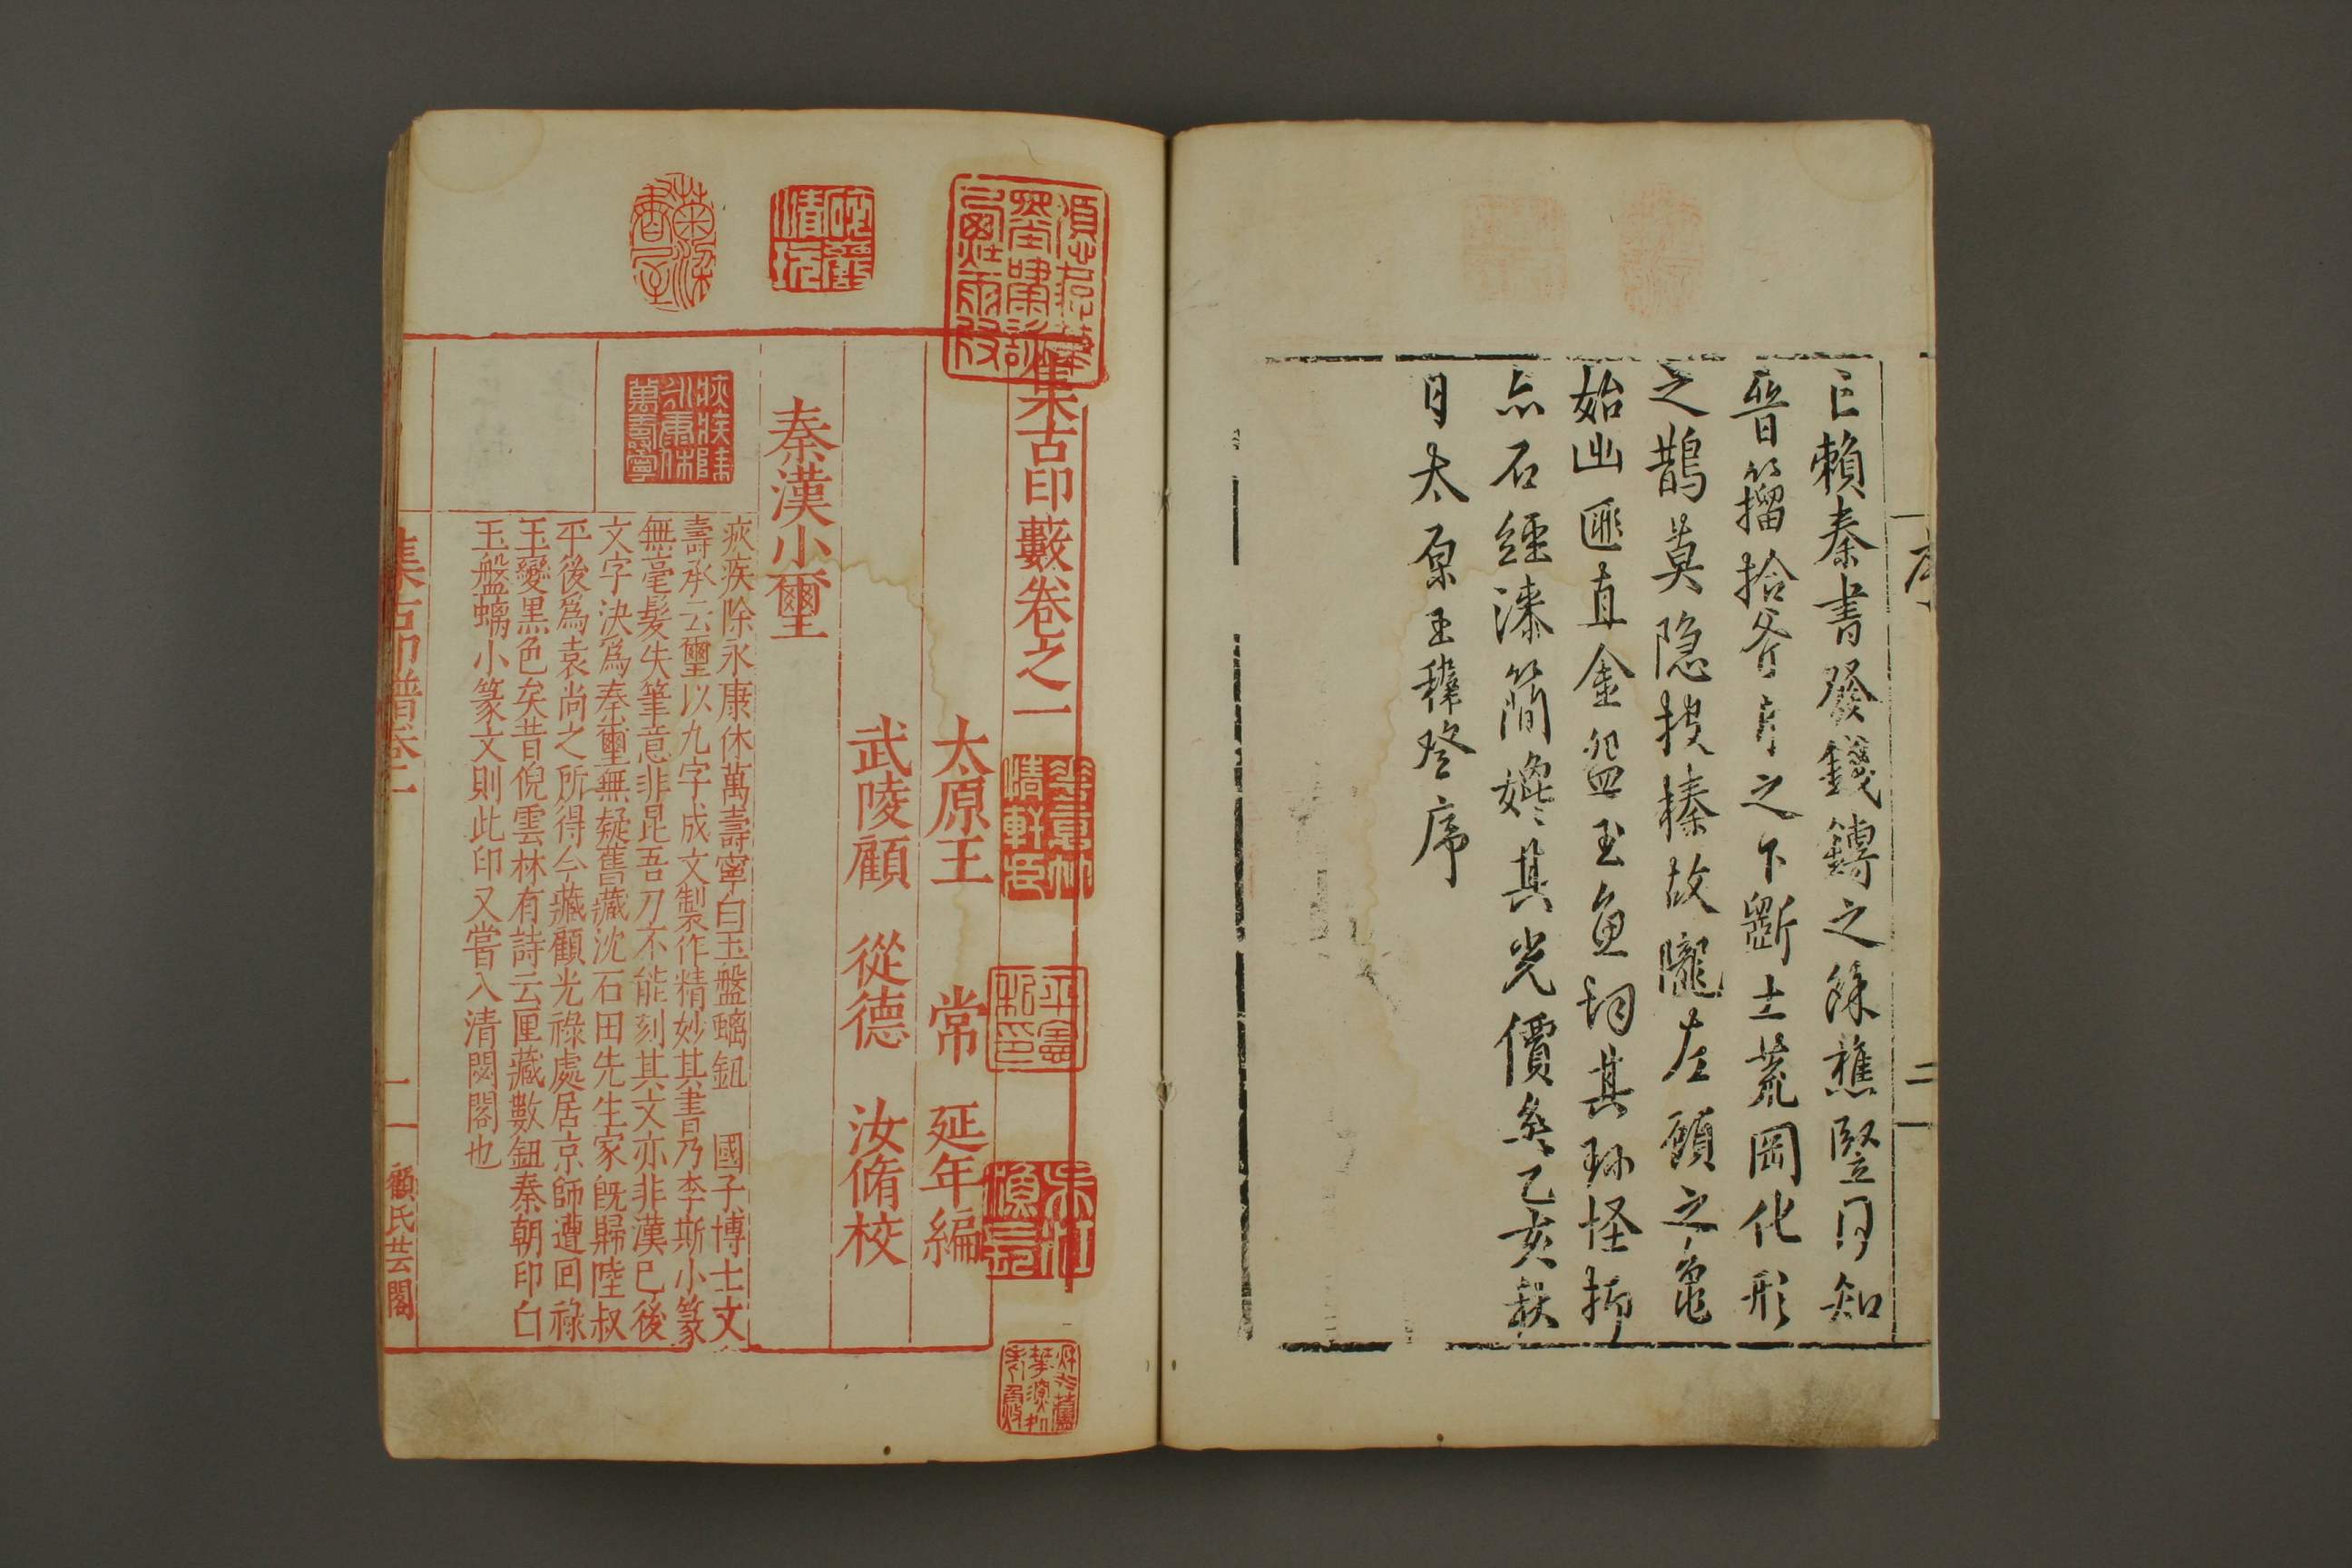 已賴秦書發錢鎛之餘樵豎同知
晉籀拾斧斤之下斷土荒岡化形
之鵲莫隱披榛故隴左顧之龜
始出匪直金盌玉魚詞其珎怪抑
亦石經漆簡媲其光價矣乙亥秋
月太原王穉登序
序
二
集古印藪卷之一
太原王 常 延年編
武陵顧 從德 汝脩校
秦漢小璽
疢疾除永康休萬壽寧
疢疾除永康休萬壽寧白玉盤螭鈕 國子博士文
壽承云璽以九字成文製作精妙其書乃李斯小篆
無毫髮失筆意非昆吾刀不能刻其文亦非漢已後
文字決爲秦璽無疑舊藏沈石田先生家旣歸陸叔
平後爲袁尚之所得今藏顧光祿處居京師遭回祿
玉變黑色矣昔倪雲林有詩云匣藏數鈕秦朝印白
玉盤螭小篆文則此印又嘗入清閟閣也
集古印譜卷一
一
顧氏芸閣